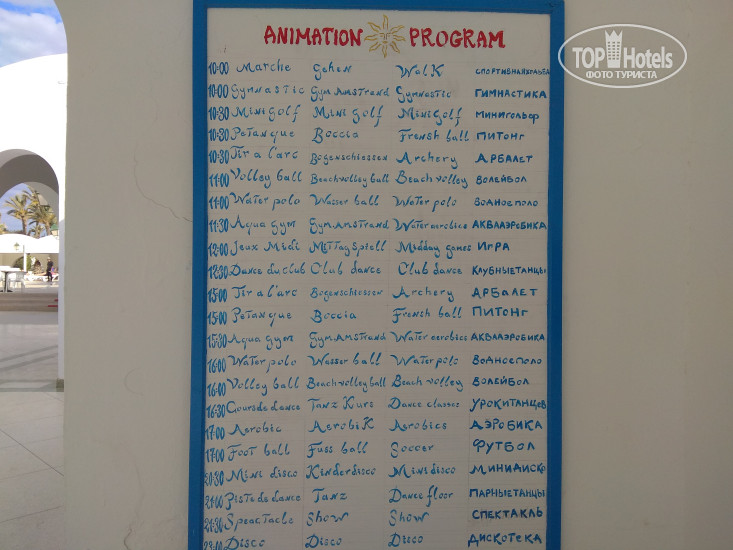 ANIMATION PROGRAM
TOP Hotels
ФОТО ТУРИСТА
10:00 Marche Gehen Walk СПОРТИВНАЯХОДЬБА
10:00 Gymnastic GymAmstrand Gymnastic ГИМНАСТИКА
10:30 Mini Golf Mini Golf Mini Golf МИНИГОЛЬФ
10:30 Petanque Boccia Frensh ball ПИТОНГ
10:30 Tir a l'arc Bogenschiessen Archery АРБАЛЕТ
11:00 Volley ball Beach volley ball Beach volley ВОЛЕЙБОЛ
11:00 Water polo Wasser ball Water polo ВОДНОЕПОЛО
11:30 Aqua gym GymAmstrand Water aerobics АКВААЭРОБИКА
12:00 Jeux Midi Mittag Spiell Midday games ИГРА
12:30 Dance du club Club dance Club dance КЛУБНЫЕТАНЦЫ
15:00 Tir a l'arc Bogenschiessen Archery АРБАЛЕТ
15:00 Petanque Boccia French ball ПИТОНГ
15:30 Aqua gym GymAmstrand Water aerobics АКВААЭРОБИКА
16:00 Water polo Wasser ball Water polo ВОДНОЕПОЛО
16:00 Volley ball Beach volley ball Beach volley ВОЛЕЙБОЛ
16:30 Cours de dance Tanz Kurs Dance classes УРОКИТАНЦЕВ
17:00 Aerobic AerobiK Aerobics АЭРОБИКА
17:00 Foot ball Fuss ball Soccer ФУТБОЛ
20:30 Mini disco Kinderdisco Mini disco МИНИДИСКО
21:00 Piste de dance Tanz Dance floor ПАРНЫЕТАНЦЫ
21:30 Speactacle Show Show СПЕКТАКЛЬ
23:00 Disco Disco Disco ДИСКОТЕКА